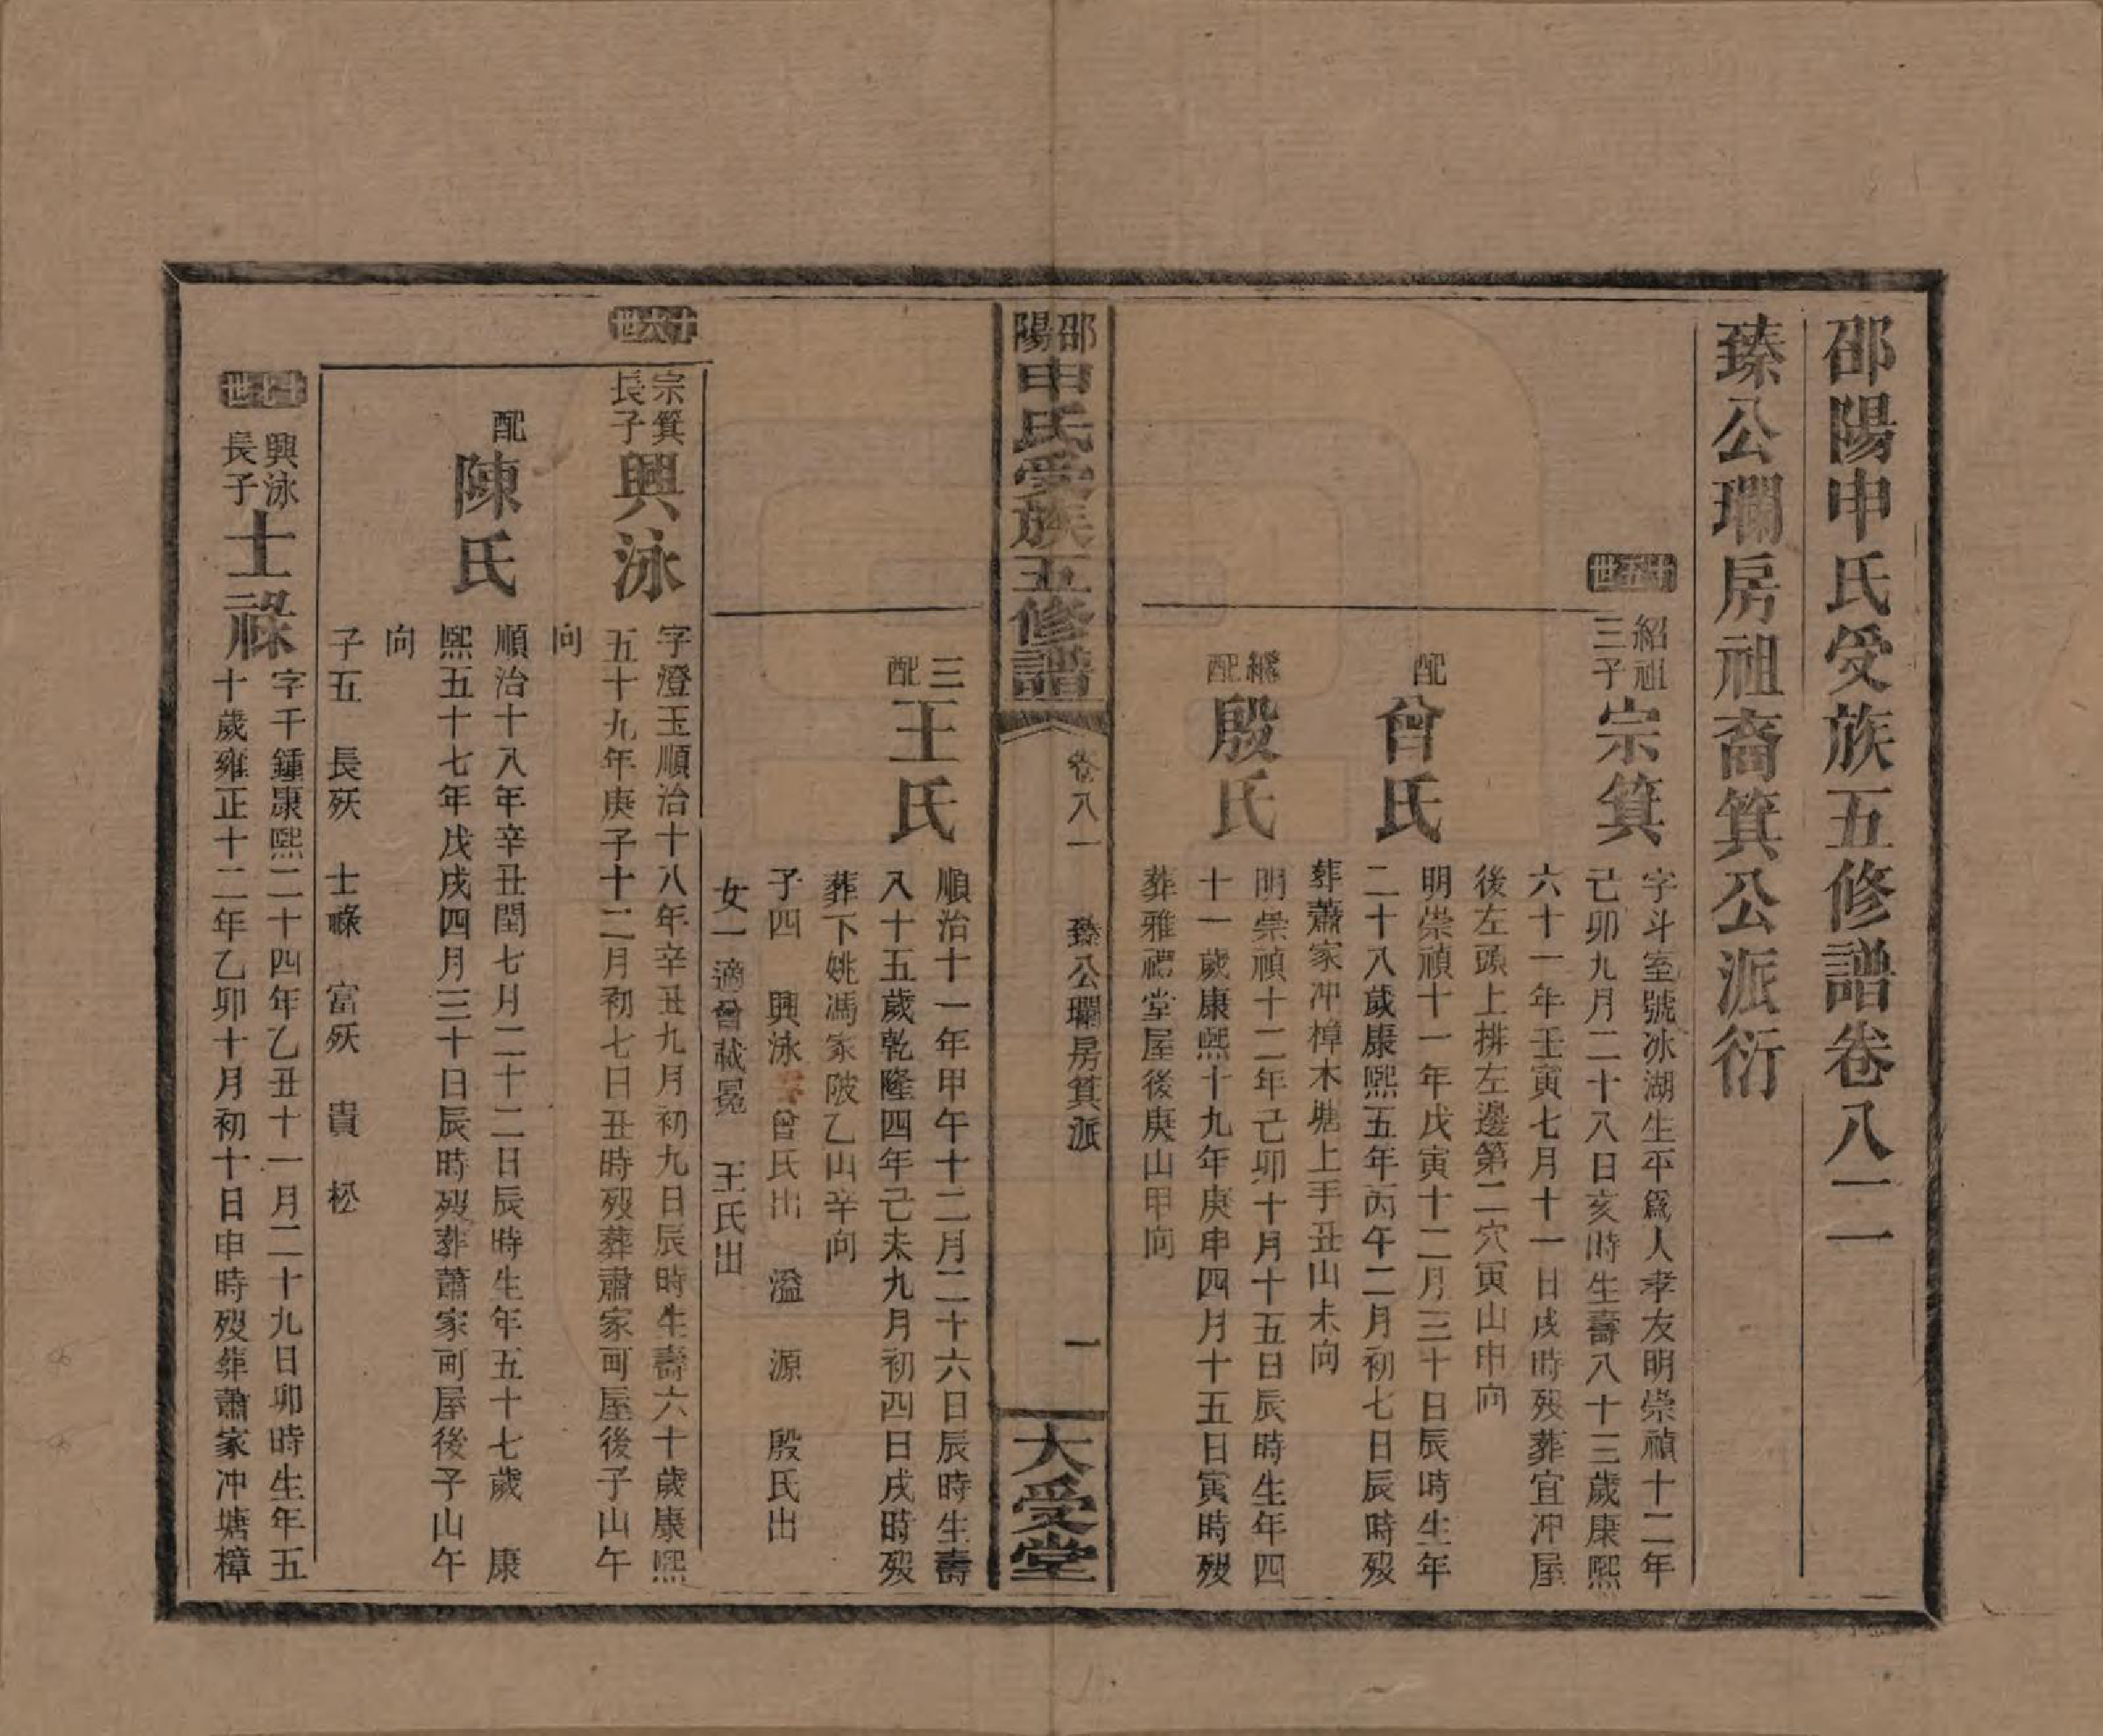 邵陽申氏受族五修譜卷八一一
臻公瓓房祖裔箕公派衍
十五世
紹祖三子
宗箕
字斗室號冰湖生平爲人孝友明崇禎十二年
己卯九月二十八日亥時生壽八十三歲康熙
六十一年壬寅七月十一日戌時歿葬宜冲屋
後左頭上排左邊第二穴寅山申向
配
曾氏
明崇禎十一年戊寅十二月三十日辰時生年
二十八歲康熙五年丙午二月初七日辰時歿
葬蕭家冲樟木塘上手丑山未向
繼配
殷氏
明崇禎十二年己卯十月十五日辰時生年四
十一歲康熙十九年庚申四月十五日寅時歿
葬雅禮堂屋後庚山甲向
邵陽申氏受族五修譜
卷八一
臻公瓓房箕派
一
大受堂
三配
王氏
順治十一年甲午十二月二十六日辰時生壽
八十五歲乾隆四年己未九月初四日戌時歿
葬下姚馮家陂乙山辛向
子四 興泳 曾氏出 溢 源 殷氏出
女一適曾 冕 王氏出
十六世
宗箕長子
興泳
字澄玉順治十八年辛丑九月初九日辰時生壽六十歲康熙
五十九年庚子十二月初七日丑時歿葬蕭家町屋後子山午
向
配
陳氏
順治十八年辛丑閏七月二十二日辰時生年五十七歲 康
熙五十七年戊戌四月三十日辰時歿葬蕭家町屋後子山午
向
子五 長殀 士祿 富殀 貴 松
十七世
興泳長子
士祿
字千鍾康熙二十四年乙丑十一月二十九日卯時生年五
十歲雍正十二年乙卯十月初十日申時歿葬蕭家冲塘樟